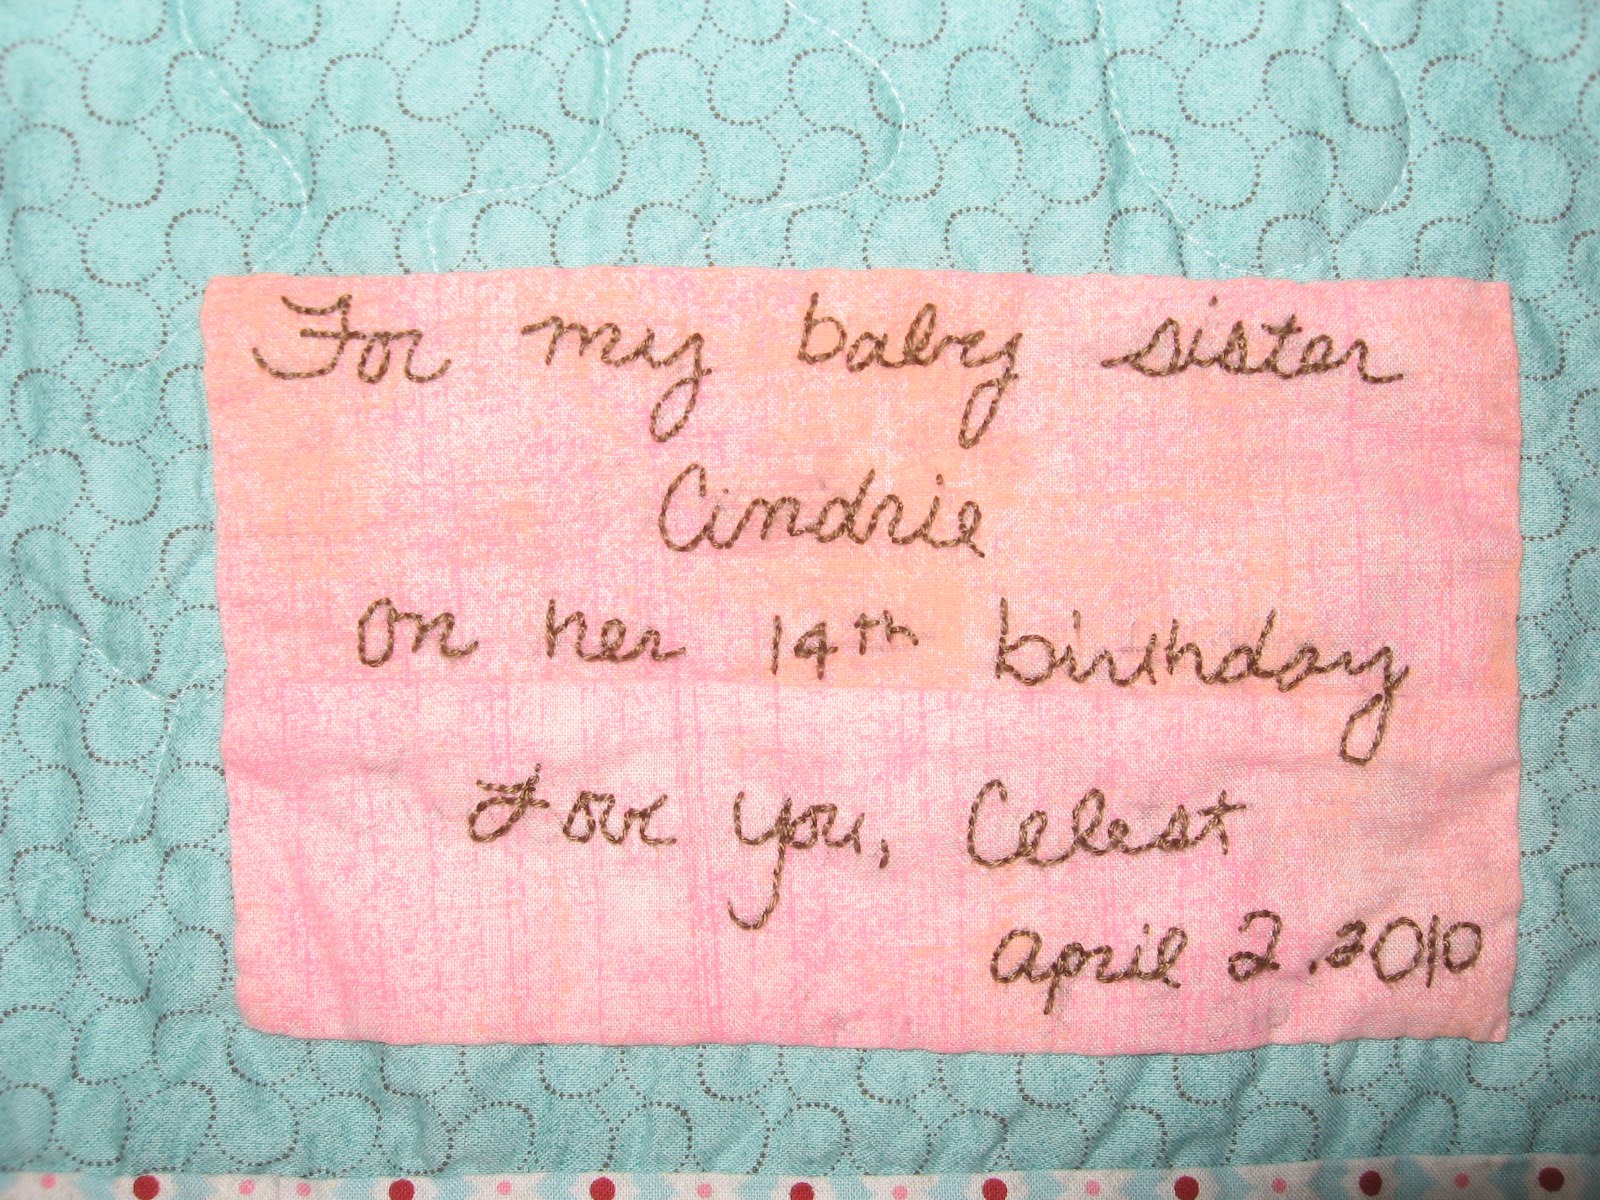 For my baby sister
Cindrie
on her 14th birthday
Love you, Celest
april 2, 2010